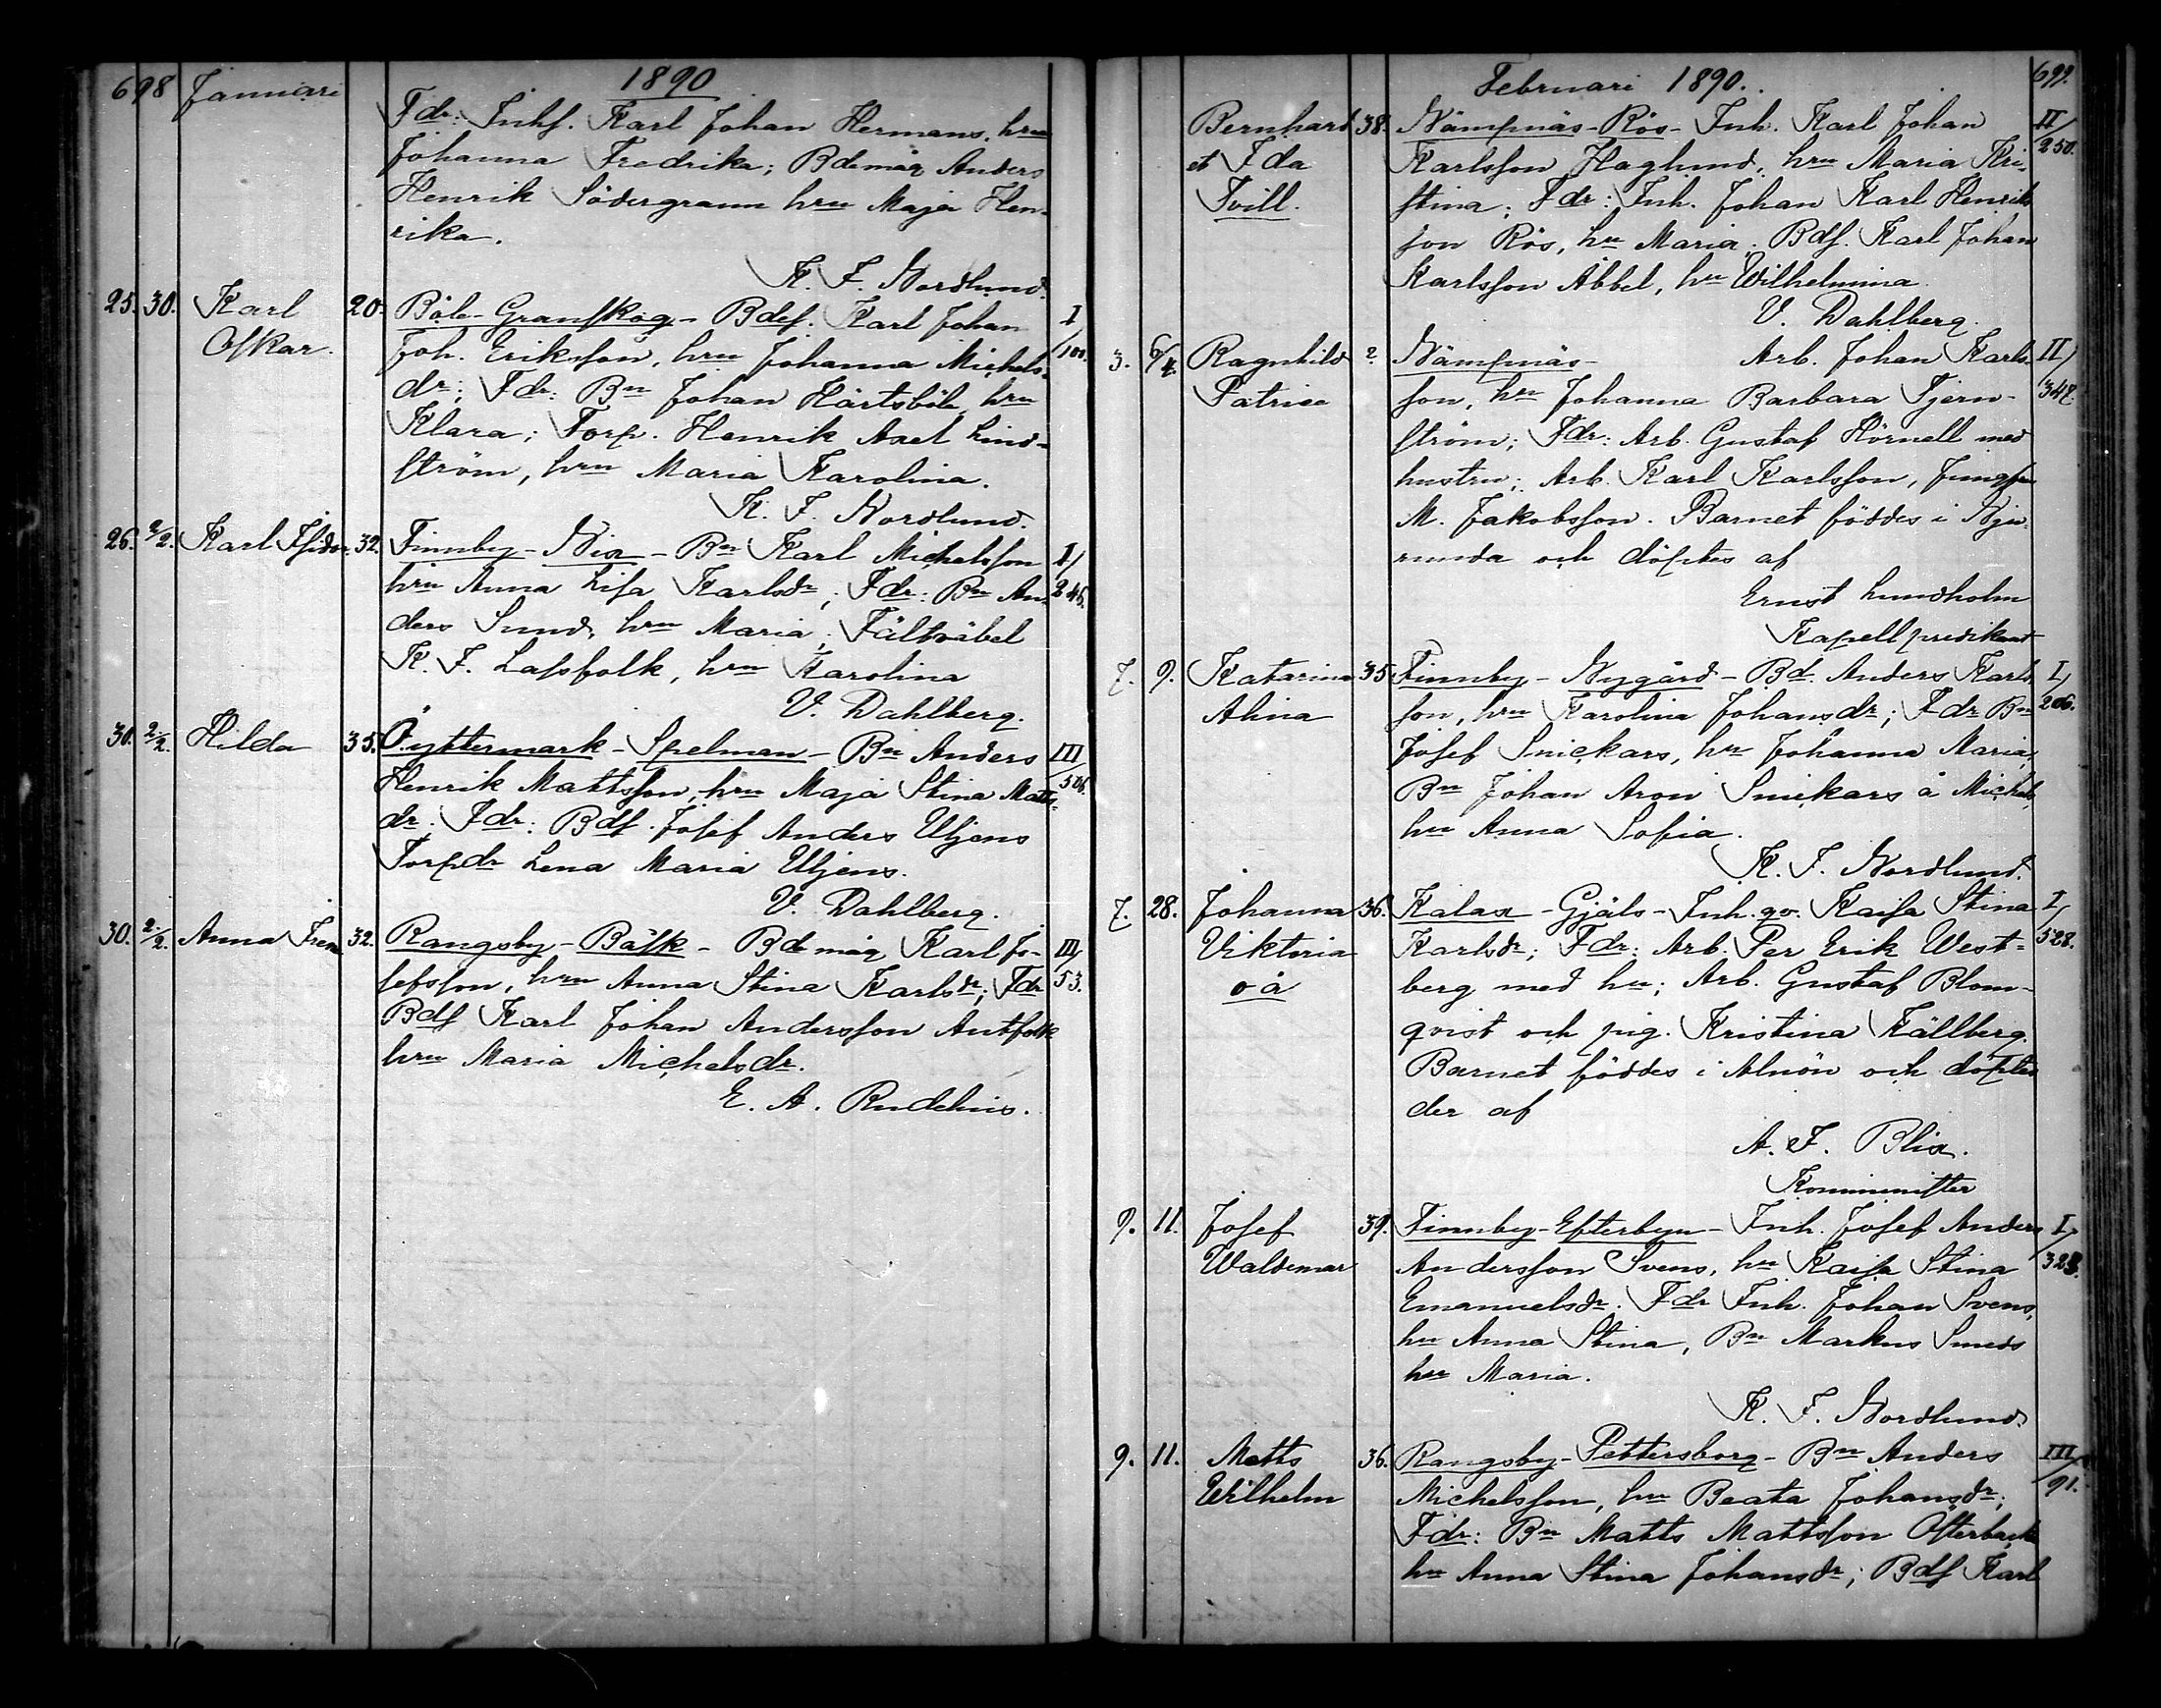 698 Januari 1890
Fdr: Inhs. Karl Johan Hermans, hru
Johanna Fredrika; Bdemåg Anders
Henrik Södergrann hru Maja Hen-
rika.
K. F. Nordlund.
25. 30. Karl 20. Böle-Granskog- Bdes. Karl Johan I/
Oskar. Joh. Eriksson, hru Johanna Michels- 100.
dr; Fdr: Bn Johan Härtsböle hru
Klara; Torp. Henrik Axel Lind-
ström, hru Maria Karolina.
K. F. Nordlund.
26. 2/2. Karl Isidor 32. Finnby-Nix- Bn Karl Michelsson I/
hru Anna Lisa Karlsdr; Fdr: Bn An- 245.
ders Sund, hru Maria; Fältväbel
K. F. Lassfolk, hru Karolina
V. Dahlberg.
30. 2/2. Hilda 35. Ö.yttermark-Spelman- Bn Anders III
Henrik Mattsson, hru Maja Stina Matts- 506.
dr. Fdr: Bds. Josef Anders Uljens
Torpdr Lena Maria Uljens.
V. Dahlberg.
30. 2/2. Anna Irene 32. Rangsby-Båsk- Bdemåg Karl Jo- III/
sefsson, hru Anna Stina Karlsdr; Fdr 53.
Bds Karl Johan Andersson Antfolk
hru Maria Michelsdr.
E. A. Rudelius.
Februari 1890. 699.
Bernhard 38. Nämpnäs-Rös- Inh. Karl Johan II/
et Ida Karlsson Haglund, hru Maria Kri- 250.
Tvill. stina; Fdr: Inh. Johan Karl Henriks
son Rös, hu Maria; Bds. Karl Johan
Karlsson Åbbel, hu Wilhelmina
V. Dahlberg.
3. 6/4. Ragnhild ? Nämpnäs- Arb. Johan Karls- II/
Patrice son, hru Johanna Barbara Tjern-
ström; Fdr: Arb. Gustaf Hörnell med
hustru; Arb. Karl Karlsson, Jungfru
M. Jakobsson. Barnet föddes i Nju-
runda och döptes af
Ernst Lundholm
Kapellpredikant
7. 9. Katarina 35. Finnby-Nygård- Bd. Anders Karls I/
Alina son, hru Karolina Johansdr; Fdr Bn 206.
Josef Snickars, hu Johanna Maria;
Bn Johan Aron Snickars å Michels,
hu Anna Sofia.
K. F. Nordlund.
7. 28. Johanna 36. Kalax-Gjäls- Inh.qv. Kaisa Stina I/
Viktoria Karlsdr; Fdr: Arb. Per Erik West- 528.
oä berg med hu; Arb. Gustaf Blom-
qvist och pig. Kristina Källberg.
Barnet föddes i Alnön och döptes
der af
A. F. Blix.
Komminister
9. 11. Josef 39. Finnby-Efterbyn- Inh. Josef Anders I/
Waldemar Andersson Svens, hu Kaisa Stina 323.
Emanuelsdr. Fdr Inh. Johan Svens,
hu Anna Stina, Bn Markus Smeds
hu Maria.
K. F. Nordlund.
9. 11. Matts 36. Rangsby-Pettersborg- Bn Anders III/
Wilhelm Michelsson, hu Beata Johansdr; 91.
Fdr: Bn Matts Mattsson Österback
hu Anna Stina Johansdr; Bds Karl